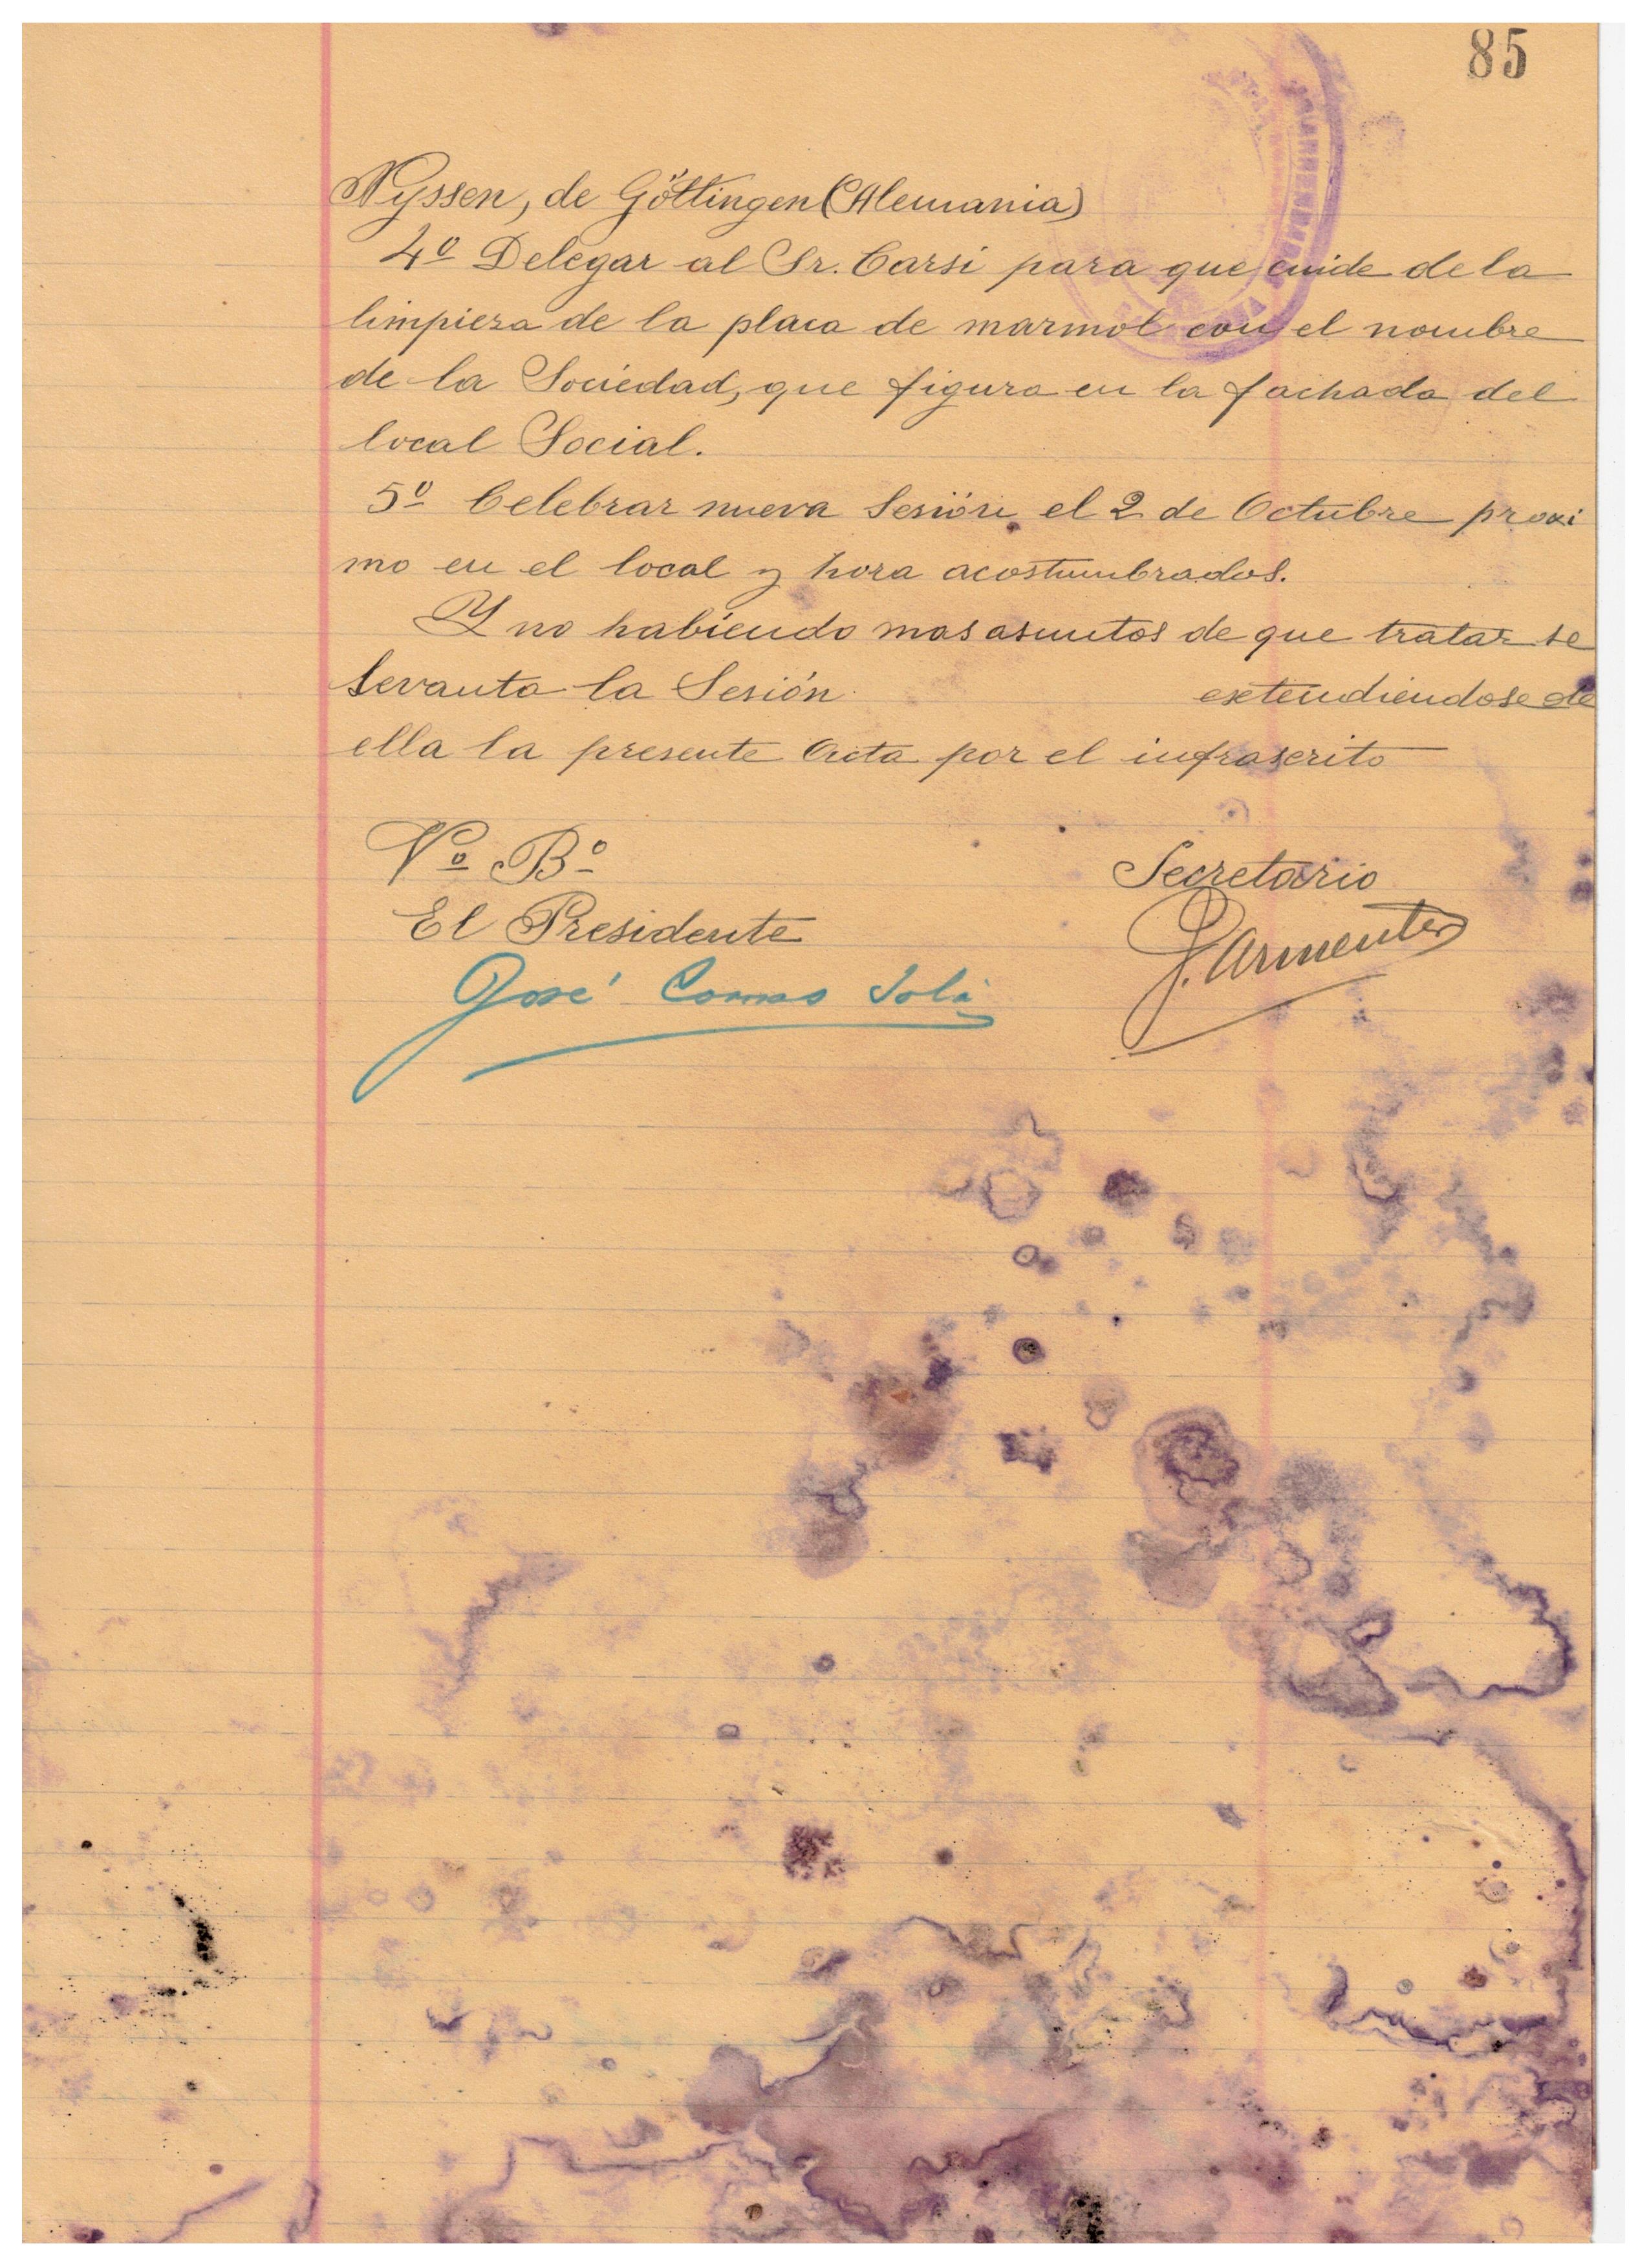 85
Nyssen, de Göttingen (Alemania)
4º Delegar al Sr. Carsi para que cuide de la
limpieza de la placa de marmol con el nombre
de la Sociedad, que figura en la fachada del
local Social.
5º Celebrar nueva Sesión el 2 de Octubre proxi
mo en el local y hora acostumbrados.
Y no habiendo mas asuntos de que tratar se
levanta la Sesión extendiendose de
ella la presente Acta por el infrascrito
Vº Bº
Secretario
El Presidente
J. Armenter
José Comas Solá